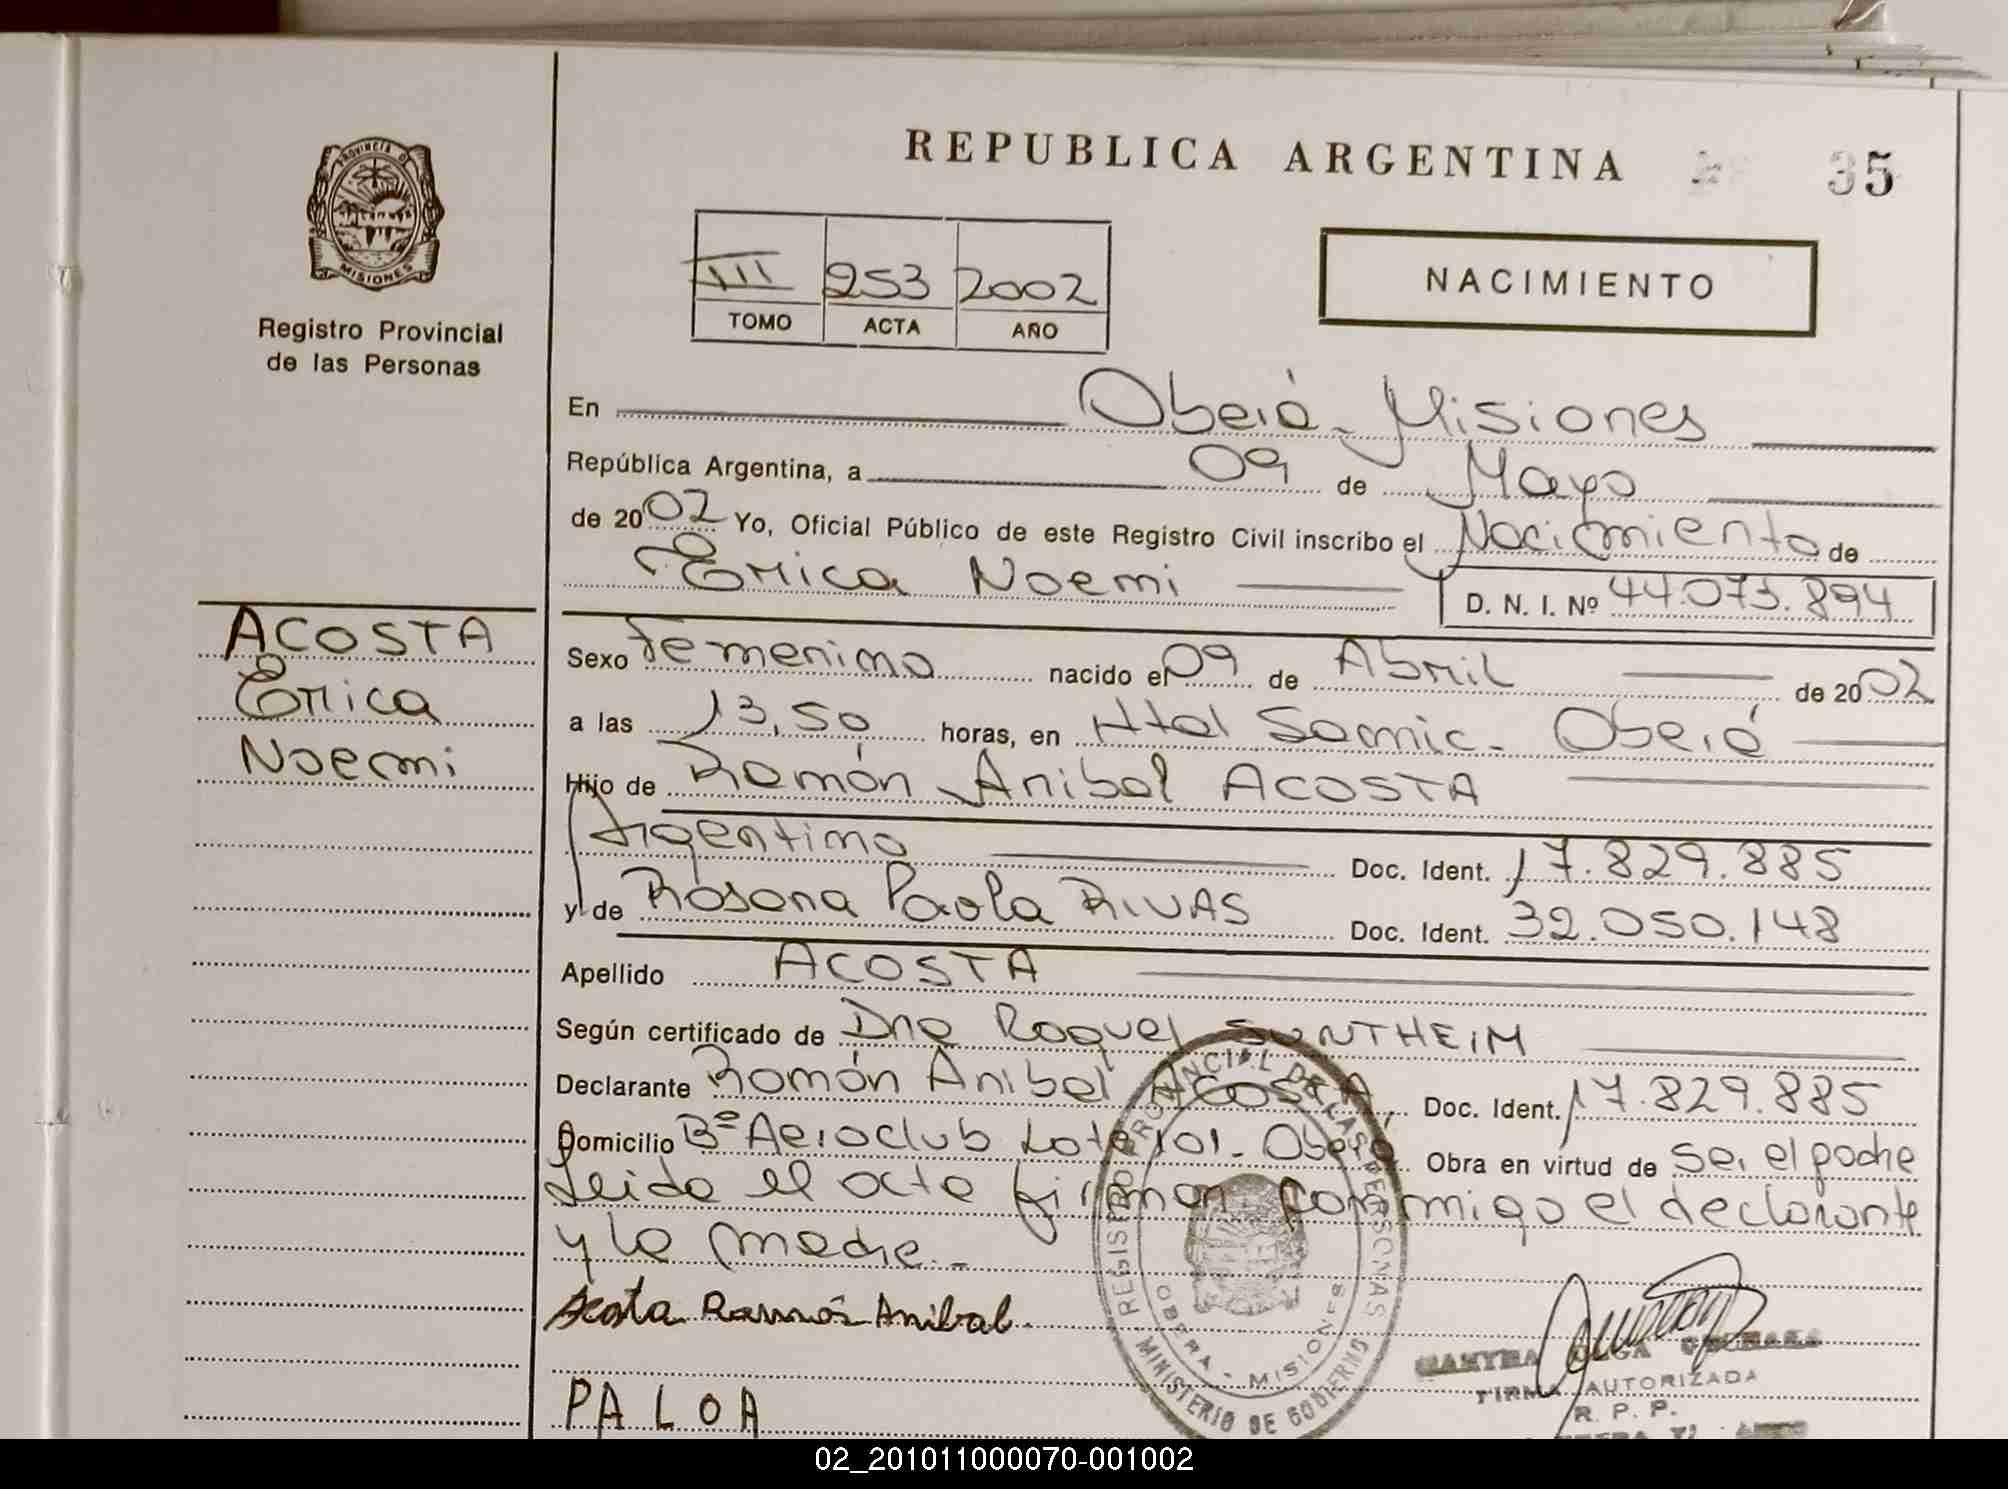 REPUBLICA ARGENTINA
35
PROVINCIA D
MISIONES
Registro Provincial
de las Personas
III 253 2002
TOMO ACTA AÑO
NACIMIENTO
En Oberá - Misiones
República Argentina, a 09 de Mayo
de 2002 Yo, Oficial Público de este Registro Civil inscribo el Nacimiento de
Erica Noemi D. N. I. Nº 44.073.894
ACOSTA
Erica
Noemi
Sexo femenino nacido el 09 de Abril de 2002
a las 13,50 horas, en Htal Samic - Oberá
Hijo de Ramón Anibal ACOSTA
Argentino Doc. Ident. 17.829.885
y de Rosana Paola RIVAS Doc. Ident. 32.050.148
Apellido ACOSTA
Según certificado de Dra Raquel SUNTHEIM
Declarante Ramón Anibal ACOSTA, Doc. Ident. 17.829.885
Domicilio Bº Aeroclub Lote 101 - Oberá Obra en virtud de ser el padre
Leida el acta firman conmigo el declarante
y la madre.-
Acosta Ramón Anibal.
PALOA
REGISTRO PROVINCIAL DE LAS PERSONAS
OBERA - MISIONES
MINISTERIO DE GOBIERNO
FIRMA AUTORIZADA
R. P. P.
02_201011000070-001002